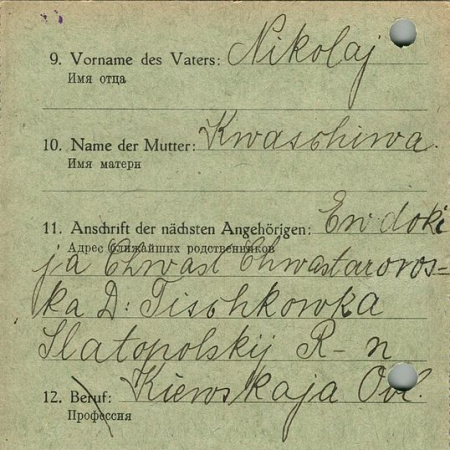 9. Vorname des Vaters: Nikolaj
Имя отца
10. Name der Mutter: Kwaschiwa.
Имя матери
11. Anschrift der nächsten Angehörigen: Ewdoki
Адрес ближайших родственников
ja Chwast Chwastarowos-
ka D: Tischkowka
Slatopolskij R-n
12. Beruf: Kiewskaja Obl.
Профессия